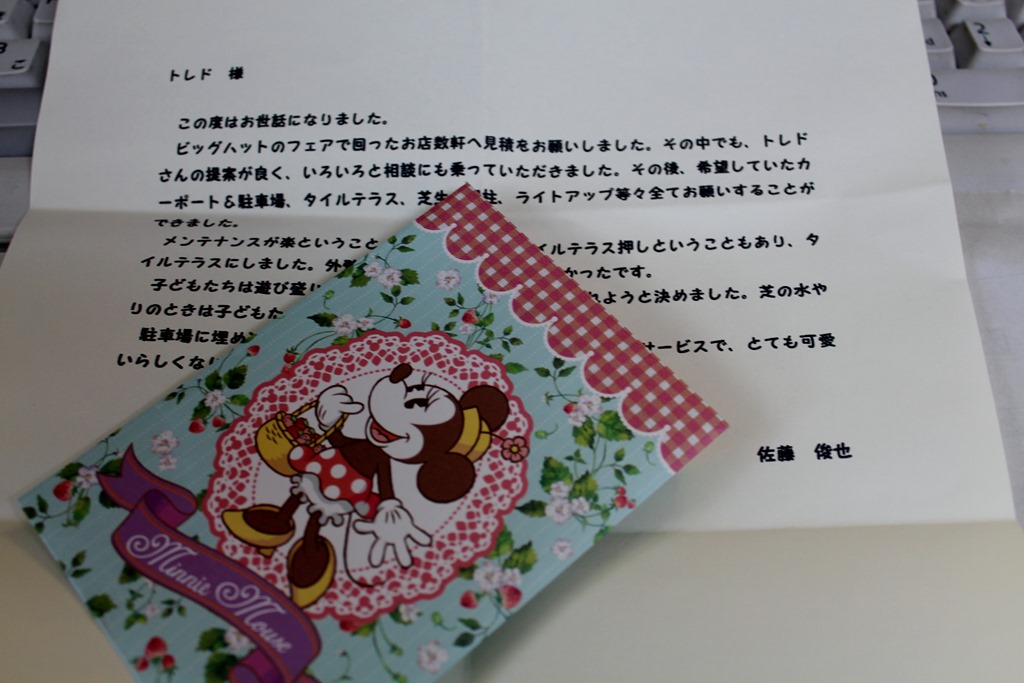 トレド 様
この度はお世話になりました。
ビッグハットのフェアで回ったお店数軒へ見積をお願いしました。その中でも、トレド
さんの提案が良く、いろいろと相談にも乗っていただきました。その後、希望していたカ
ーポート&駐車場、タイルテラス、芝生 柱、ライトアップ等々全てお願いすることが
できました。
メンテナンスが楽ということ イルテラス押しということもあり、タ
イルテラスにしました。外 かったです。
子どもたちは遊び盛り れようと決めました。芝の水や
りのときは子どもた
駐車場に埋め サービスで、とても可愛
いらしくなり
佐藤 俊也
Minnie Mouse